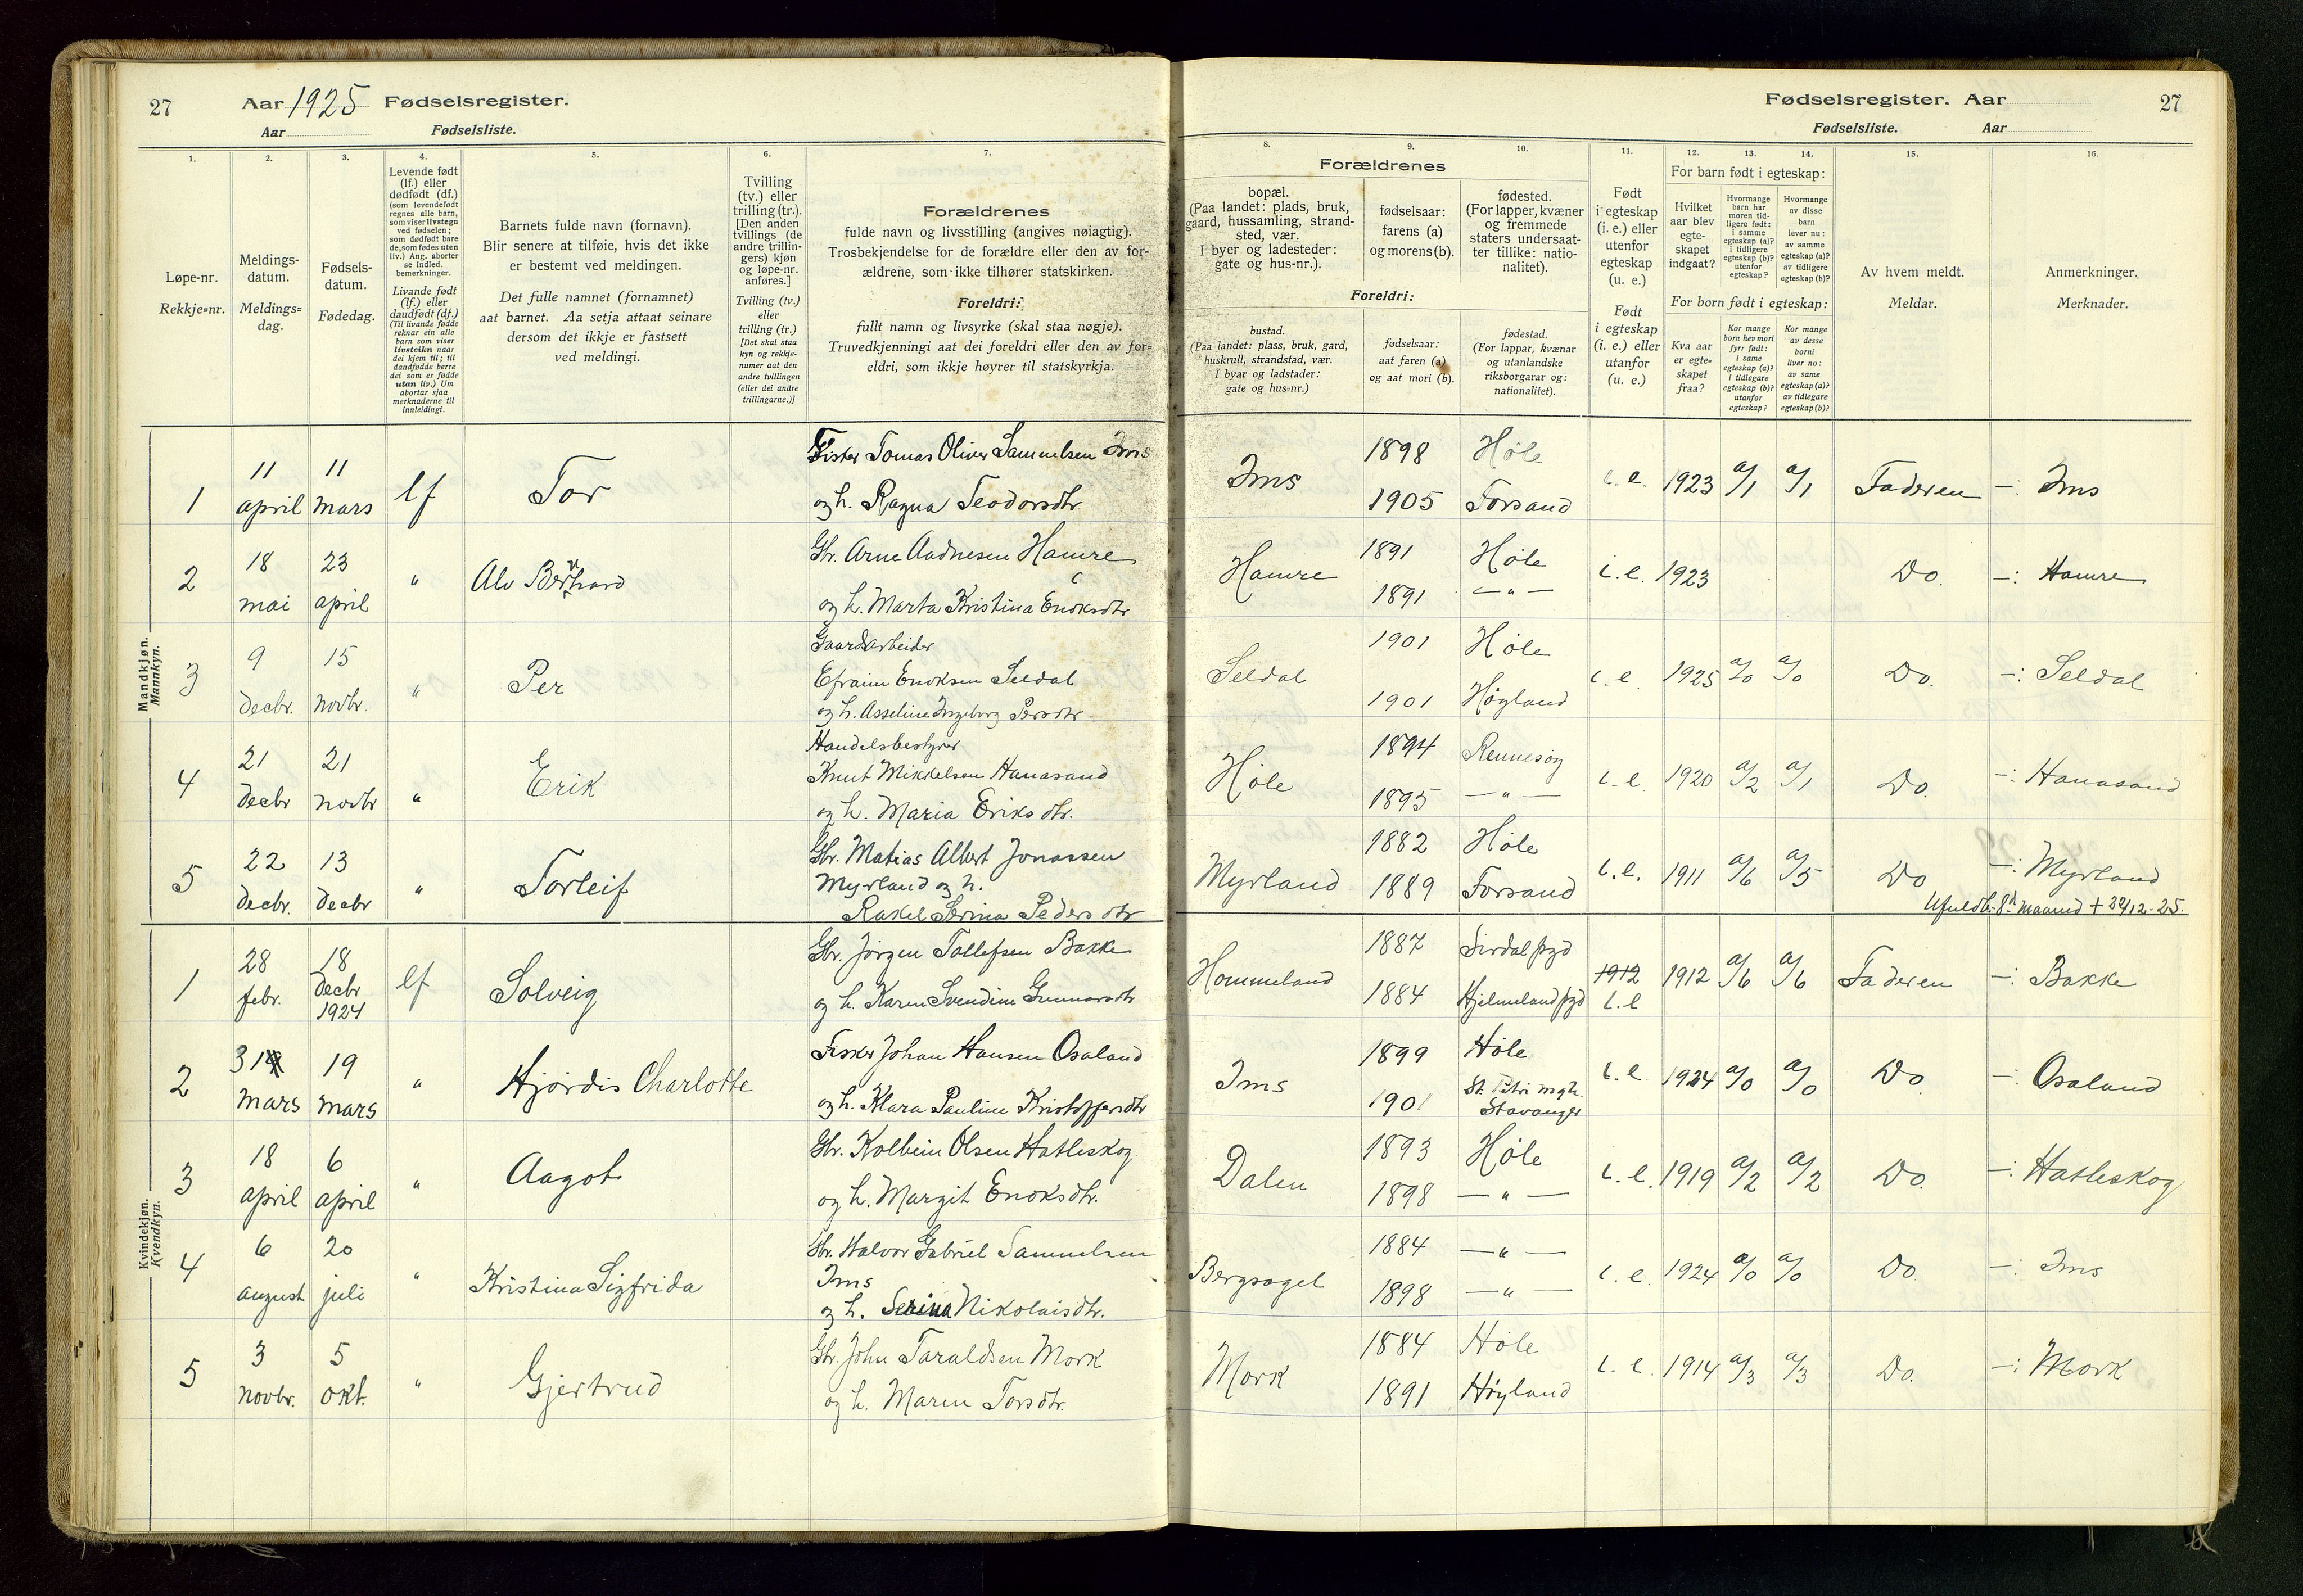 27 Aar 1925 Fødselsregister.
Aar Fødselsliste.
1.
Løpe-nr.
Rekkje=nr.
2.
Meldings-
datum.
Meldings=
dag.
3.
Fødsels-
datum.
Fødedag.
4.
Levende født
(lf.) eller
dødfødt (df.)
(som levendefødt
regnes alle barn,
som viser livstegn
ved fødselen;
som dødfødt bare
de, som fødes uten
liv.) Ang. aborter
se indled.
bemerkninger.
Livande født
(lf.) eller
daudfødt (df.)
(Til livande fødde
reknar ein alle
barn som viser
livsteikn naar
dei kjem til; til
daudfødde berre
dei som er fødde
utan liv.) Um
abortar sjaa
merknaderne til
innleidingi.
5.
Barnets fulde navn (fornavn).
Blir senere at tilføie, hvis det ikke
er bestemt ved meldingen.
Det fulle namnet (fornamnet)
aat barnet. Aa setja attaat seinare
dersom det ikkje er fastsett
ved meldingi.
6.
Tvilling
(tv.) eller
trilling (tr.).
[Den anden
tvillings (de
andre trillin-
gers) kjøn
og løpe-nr.
anføres.]
Tvilling (tv.)
eller
trilling (tr.)
[Det skal staa
kyn og rekkje-
numer aat den
andre tvillingen
(eller dei andre
trillingarne.)]
7.
Forældrenes
fulde navn og livsstilling (angives nøiagtig).
Trosbekjendelse for de forældre eller den av for-
ældrene, som ikke tilhører statskirken.
Foreldri:
fullt namn og livsyrke (skal staa nøgje).
Truvedkjenningi aat dei foreldri eller den av for=
eldri, som ikkje høyrer til statskyrkja.
Fødselsregister. Aar 27
Fødselsliste. Aar
8.
Forældrenes
bopæl.
(Paa landet: plads, bruk,
gaard, hussamling, strand-
sted, vær.
I byer og ladesteder:
gate og hus-nr.).
Foreldri:
bustad.
(Paa landet: plass, bruk, gard,
huskrull, strandstad, vær.
I byar og ladstader:
gate og hus=nr.)
9.
fødselsaar:
farens (a)
og morens (b).
fødselsaar:
aat faren (a)
og aat mori (b).
10.
fødested.
(For lapper, kvæner
og fremmede
staters undersaat-
ter tillike: natio-
nalitet).
fødestad.
(For lappar, kvænar
og utanlandske
riksborgarar og:
nationalitet).
11.
Født
i egteskap
(i. e.) eller
utenfor
egteskap
(u. e.)
Født
i egteskap
(i. e.) eller
utanfor
(u. e.)
12. 13. 14.
For barn født i egteskap:
Hvilket
aar blev
egte-
skapet
indgaat?
Hvormange
barn har
moren tid-
ligere født:
i samme
egteskap (a)?
i tidligere
egteskap (b)?
utenfor
egteskap?
Hvormange
av disse
barn
lever nu:
av samme
egteskap (a)?
av tidligere
egteskap (b)?
For born født i egteskap:
Kva aar
er egte=
skapet
fraa?
Kor mange
born hev mori
fyrr født:
i same
egteskap (a)?
i tidlegare
egteskap (b)?
utanfor
egteskap?
Kor mange
av desse
borni
liver no:
av same
egteskap (a)?
av tidlegare
egteskap (b)?
15.
Av hvem meldt.
Meldar.
16.
Anmerkninger.
Merknader.
Mandkjøn.
Mannkyn.
1 11 april 11 mars lf Tor Fisker Tomas Oliver Samuelsen Ims
og h. Ragna Teodorsdtr. Ims 1898 Høle 1905 Forsand i. e. 1923 a/1 a/1 Faderen —: Ims
2 18 mai 23 april " Alv Bernhard Gbr. Arne Aadnesen Hamre
og h. Marta Kristina Enoksdtr Hamre 1891 Høle 1891 — " — i. e. 1923 Do. —: Hamre
3 9 decbr. 15 novbr. " Per Gaardarbeider
Efraim Enoksen Seldal
og h. Asseline Ingeborg Persdtr Seldal 1901 Høle 1901 Høyland i. e. 1925 a/0 a/0 Do. —: Seldal
4 21 decbr 21 novbr " Erik Handelsbestyrer
Knut Mikkelsen Hanasand
og h. Maria Eriksdtr. Høle 1894 Rennesøy 1895 — " — i. e. 1920 a/2 a/1 Do. —: Hanasand
5 22 decbr. 13 decbr " Torleif Gbr. Matias Albert Jonassen
Myrland og h.
Rakel Serina Pedersdtr Myrland 1882 Høle 1889 Forsand i. e. 1911 a/6 a/5 Do —: Myrland
Kvindekjøn.
Kvendkyn.
1 28 febr. 18 decbr 1924 lf Solveig Gbr. Jørgen Tollefsen Bakke
og h. Karen Svendine Gunnarsdtr Hommeland 1887 Sirdal pgd 1884 Hjelmeland pgd 1912 i. e 1912 a/6 a/6 Faderen —: Bakke
2 31 mars 19 mars " Hjørdis Charlotte Fisker Johan Hansen Osaland
og h. Klara Pauline Kristoffersdtr Ims 1899 Høle 1901 St. Petri mgh. Stavanger i. e. 1924 a/0 a/0 Do. —: Osaland
3 18 april 6 april " Aagot Gbr. Kolbein Olsen Hatleskog
og h. Margit Enoksdtr. Dalen 1893 Høle 1898 — " — i. e. 1919 a/2 a/2 Do. —: Hatleskog
4 6 august 20 juli " Kristina Sigfrida Gbr. Halvor Gabriel Samuelsen
Ims
og h. Serina Nikolaisdtr. Bergsagel 1884 — " — 1898 — " — i. e. 1924 a/0 a/0 Do. —: Ims
5 3 novbr. 5 okt. " Gjertrud Gbr. John Taraldsen Mork
og h. Maren Torsdtr. Mork 1884 Høle 1891 Høyland i. e. 1914 a/3 a/3 Do. —: Mork